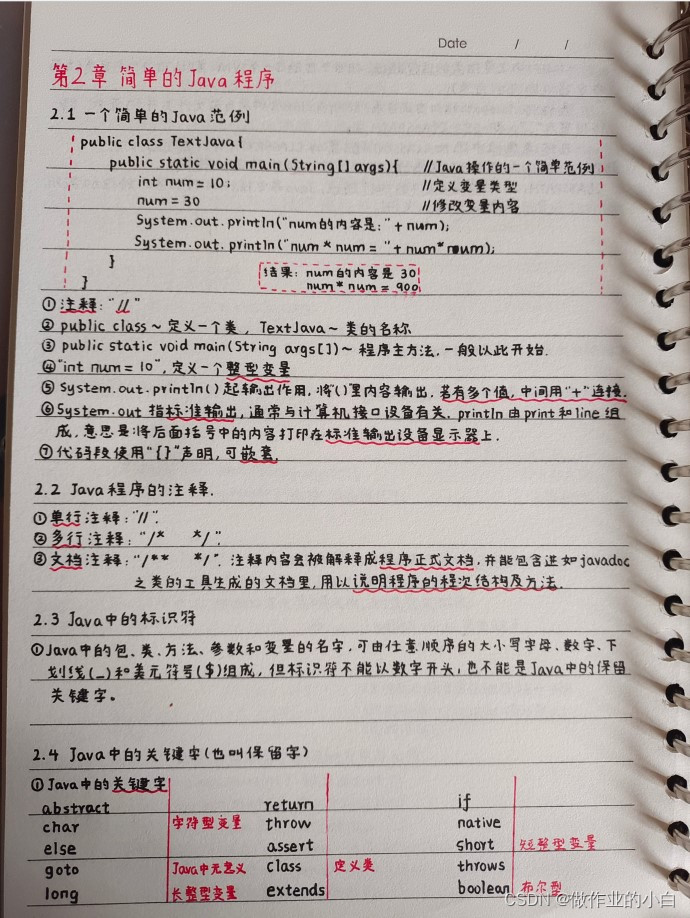 Date / /
第2章 简单的Java程序
2.1 一个简单的Java范例
public class TextJava{
public static void main(String[] args){ //Java操作的一个简单范例
int num = 10; //定义变量类型
num = 30 //修改变量内容
System.out.println("num的内容是:" + num);
System.out.println("num * num = " + num* num);
}
}
结果: num的内容是 30
num* num = 900
①注释:"//"
② public class ~ 定义一个类, TextJava ~ 类的名称
③ public static void main(String args[]) ~ 程序主方法,一般以此开始.
④"int num = 10",定义一个整型变量
⑤ System.out.println()起输出作用,将"()"里内容输出,若有多个值,中间用"+"连接.
⑥System.out 指标准输出,通常与计算机接口设备有关,println由print和line组
成,意思是:将后面括号中的内容打印在标准输出设备显示器上.
⑦代码段使用"{}"声明,可嵌套.
2.2 Java程序的注释.
①单行注释:"//".
②多行注释:"/* */".
③文档注释:"/** */". 注释内容会被解释成程序正式文档,并能包含进如javadoc
之类的工具生成的文档里,用以说明程序的程次结构及方法.
2.3 Java中的标识符
①Java中的包、类、方法、参数和变量的名字,可由任意顺序的大小写字母、数字、下
划线(_)和美元符号($)组成,但标识符不能以数字开头,也不能是Java中的保留
关键字。
2.4 Java中的关键字(也叫保留字)
①Java中的关键字
abstract return if
char 字符型变量 throw native
else assert short 短整型变量
goto Java中无意义 class 定义类 throws
long 长整型变量 extends boolean 布尔型
CSDN @做作业的小白